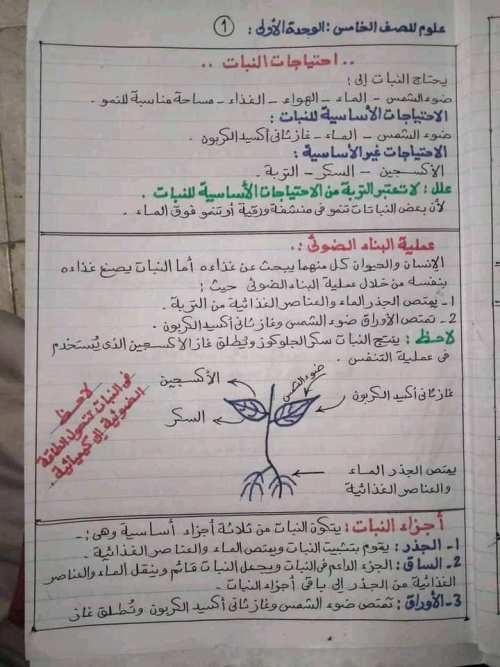 علوم للصف الخامس : الوحدة الأولى :
1
.. احتياجات النبات ..
يحتاج النبات إلى :
ضوء الشمس - الماء - الهواء - الغذاء - مساحة مناسبة للنمو .
الاحتياجات الأساسية للنبات :
ضوء الشمس - الماء - غاز ثانى أكسيد الكربون .
الاحتياجات غير الأساسية :
الأكسجين - السكر - التربة .
علل : لا تعتبر التربة من الاحتياجات الأساسية للنبات .
لأن بعض النباتات تنمو فى منشفة ورقية أو تنمو فوق الماء .
عملية البناء الضوئى :
الإنسان والحيوان كل منهما يبحث عن غذاءه أما النبات يصنع غذاءه
بنفسه من خلال عملية البناء الضوئى حيث :
1- يمتص الجذر الماء والعناصر الغذائية من التربة .
2- تمتص الأوراق ضوء الشمس وغاز ثانى أكسيد الكربون .
لاحظ : ينتج النبات سكر الجلوكوز ويُطلق غاز الأكسجين الذى يُستخدم
فى عملية التنفس .
ضوء الشمس
الأكسجين
غاز ثانى أكسيد الكربون
السكر
لاحظ
فى النبات تتحول الطاقة
الضوئية إلى كيميائية .
يمتص الجذر الماء
والعناصر الغذائية
أجزاء النبات : يتكون النبات من ثلاثة أجزاء أساسية وهى :-
1- الجذر : يقوم بتثبيت النبات ويمتص الماء والعناصر الغذائية .
2- الساق : الجزء الداعم فى النبات ويجعل النبات قائم وينقل الماء والعناصر
الغذائية من الجذر إلى باقى أجزاء النبات .
3- الأوراق : تمتص ضوء الشمس وغاز ثانى أكسيد الكربون وتُطلق غاز